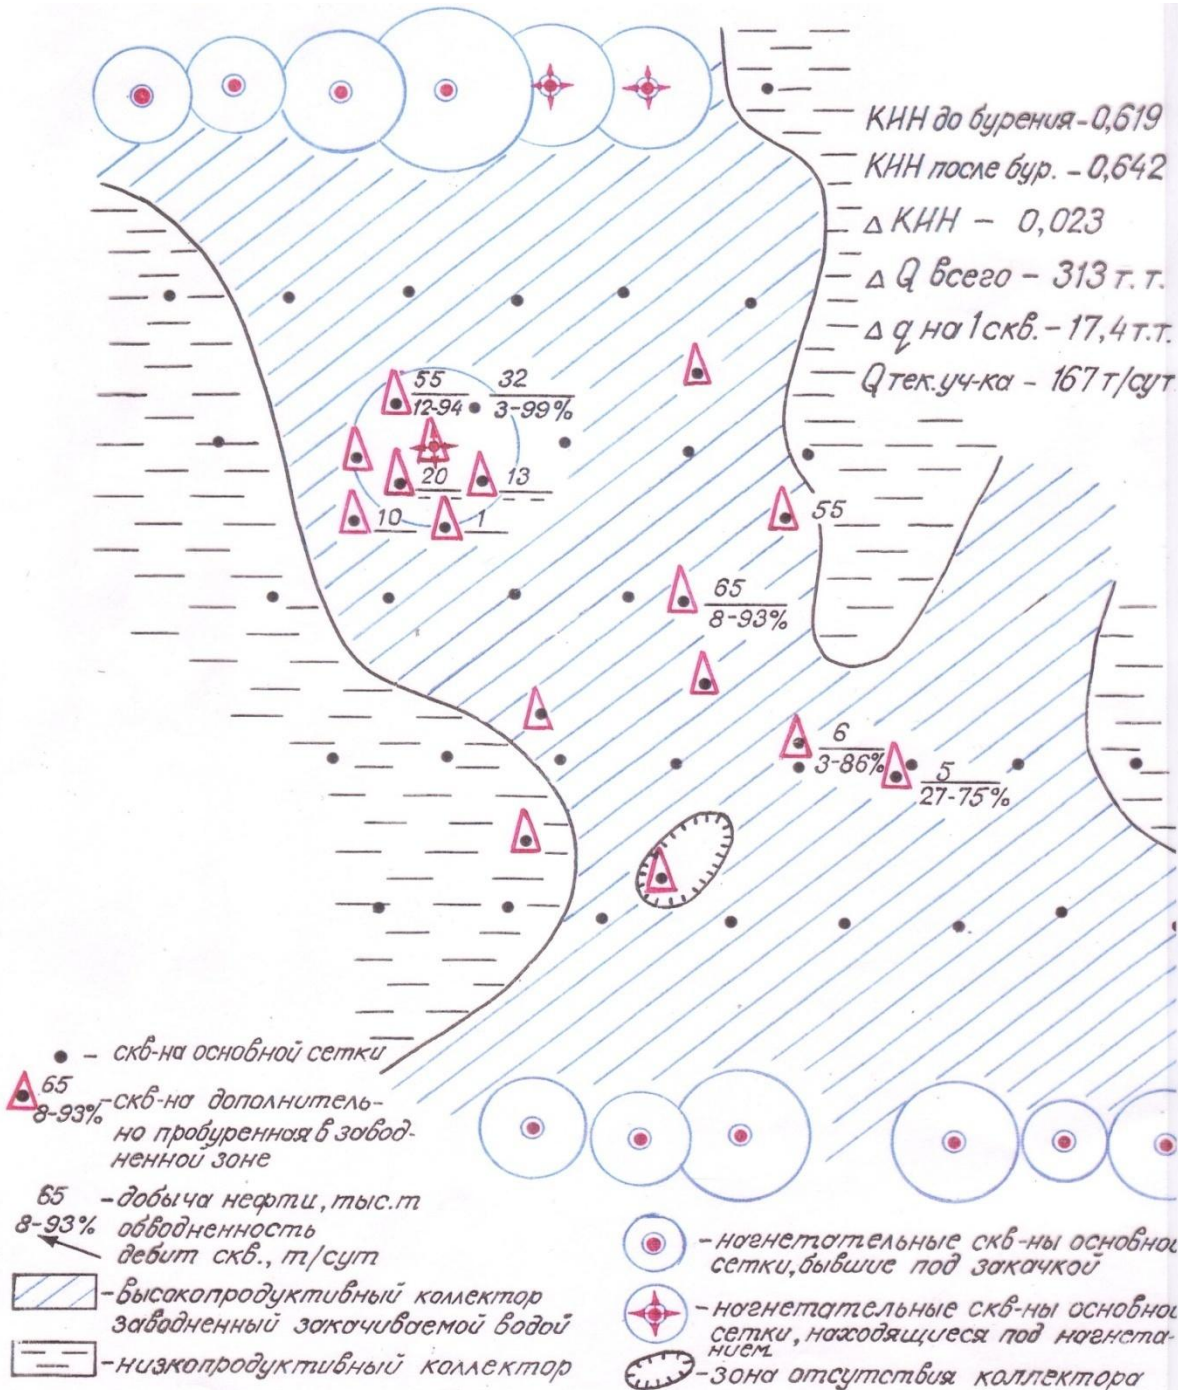 КИН до бурения-0,619
КИН после бур. - 0,642
Δ КИН - 0,023
Δ Q всего - 313 т.т.
Δ q на 1 скв. - 17,4 т.т.
Q тек. уч-ка - 167 т/сут
55
12-94
32
3-99%
20
13
10
1
55
65
8-93%
6
3-86%
5
27-75%
- скв-на основной сетки
65
8-93%
-скв-на дополнитель-
но пробуренная в завод-
ненной зоне
65 -добыча нефти, тыс.т
8-93% обводненность
дебит скв., т/сут
-высокопродуктивный коллектор
заводненный закачиваемой водой
-низкопродуктивный коллектор
-нагнетательные скв-ны основно
сетки, бывшие под закачкой
-нагнетательные скв-ны основно
сетки, находящиеся под нагнета-
нием
-зона отсутствия коллектора